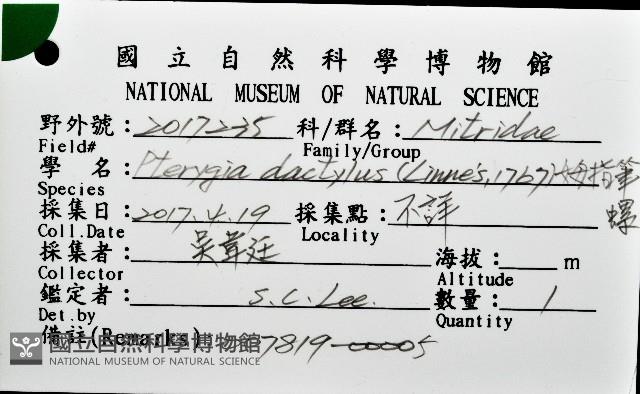 國立自然科學博物館
NATIONAL MUSEUM OF NATURAL SCIENCE
野外號：2017235 科/群名：Mitridae
Field# Family/Group
學 名：Pterygia dactylus (Linne's, 1767) 拇指筆螺
Species
採集日：2017.4.19 採集點：不詳
Coll.Date Locality
採集者： 海拔： m
Collector Altitude
鑑定者：S.C.Lee. 數量：1
Det.by Quantity
備註(Remarks) 7819-00005
國立自然科學博物館
NATIONAL MUSEUM OF NATURAL SCIENCE